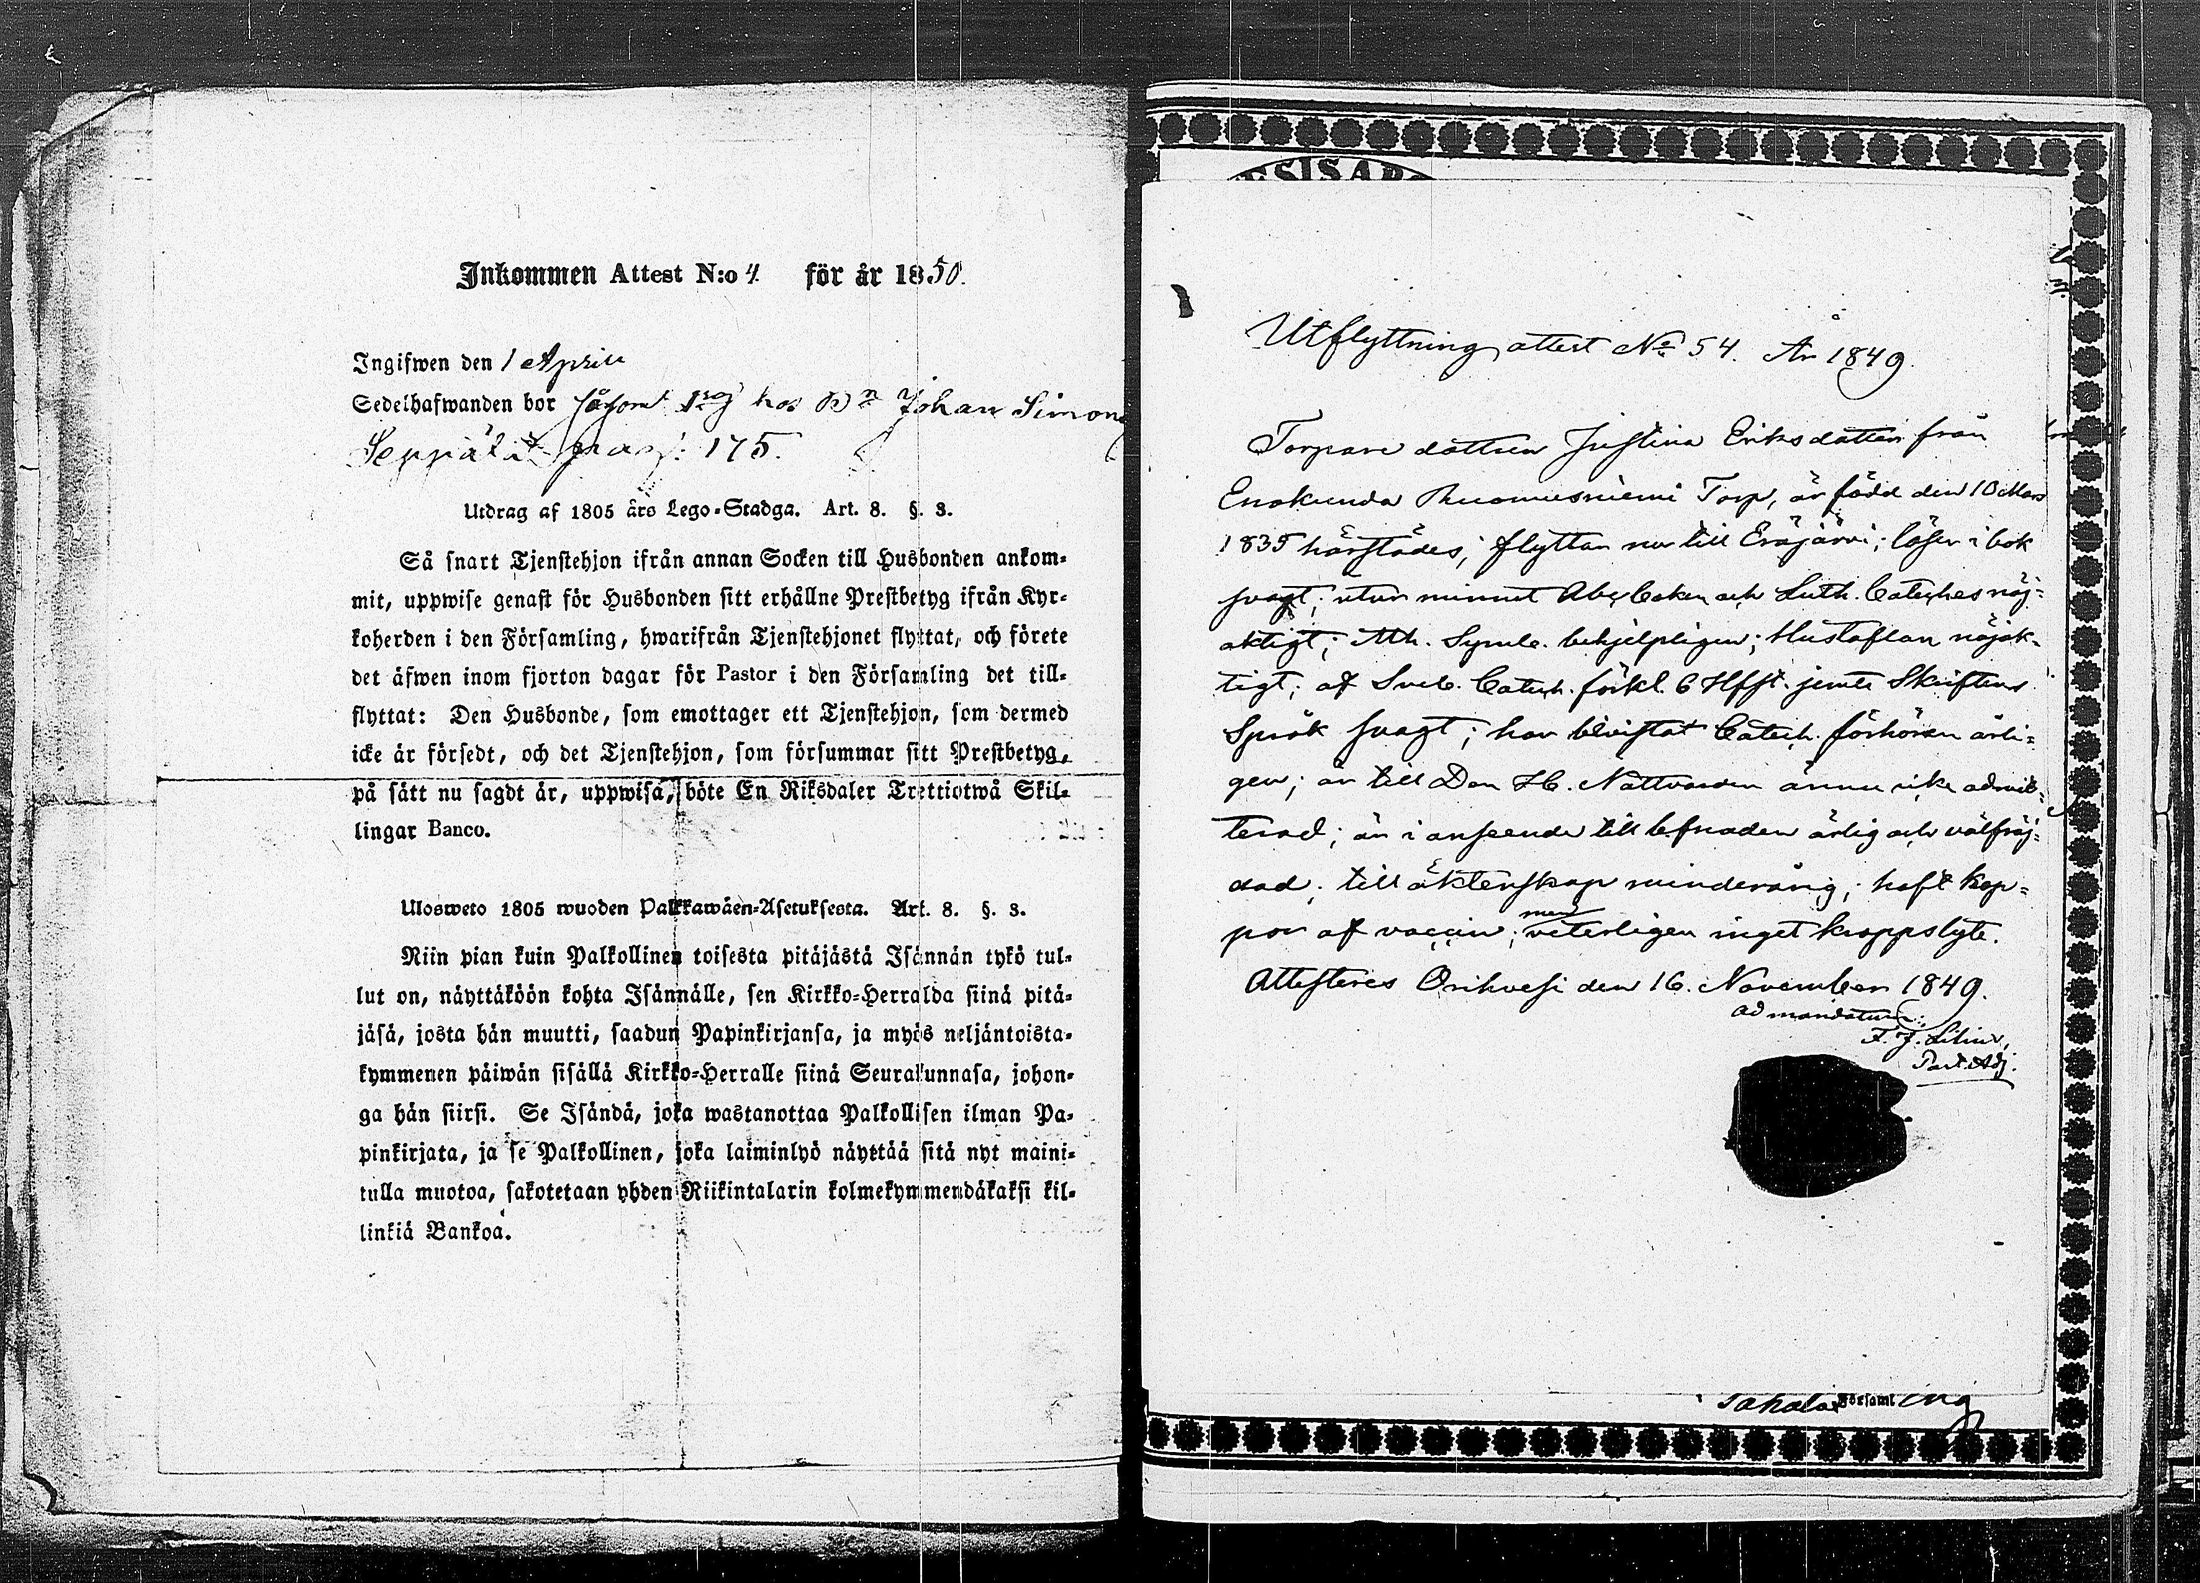 Inkommen Attest N:o 4. för år 1850.
Ingifwen den 1 Aprill
Sedelhafwanden bor hos Johan Simons
Seppälä pag: 175.
Utdrag af 1805 års Lego-Stadga. Art. 8. §. 3.
Så snart Tjenstehjon ifrån annan Socken till Husbonden ankom-
mit, uppwise genast för Husbonden sitt erhållne Prestbetyg ifrån Kyr-
koherden i den Församling, hwarifrån Tjenstehjonet flyttat, och förete
det äfwen inom fjorton dagar för Pastor i den Församling det till-
flyttat: Den Husbonde, som emottager ett Tjenstehjon, som dermed
icke är försedt, och det Tjenstehjon, som försummar sitt Prestbetyg,
på sätt nu sagdt är, uppwisa, böte En Riksdaler Trettiotwå Skil-
lingar Banco.
Ulosweto 1805 wuoden Palkkawäen-Asetuksesta. Art. 8. §. 3.
Niin pian kuin Palkollinen toisesta pitäjästä Isännän tykö tul-
lut on, näyttäköön kohta Isännälle, sen Kirkko-Herralda siinä pitä-
jäsä, josta hän muutti, saadun Papinkirjansa, ja myös neljäntoista-
kymmenen päiwän sisällä Kirkko-Herralle siinä Seurakunnasa, johon-
ga hän siirsi. Se Isändä, joka wastanottaa Palkollisen ilman Pa-
pinkirjata, ja se Palkollinen, joka laiminlyö näyttää sitä nyt maini-
tulla muotoa, sakotetaan yhden Riikintalarin kolmekymmendäkaksi kil-
linkiä Bankoa.
Utflyttning attest No 54. År 1849.
Torpare dottren Justina Eriksdotter från
Enokunda Ruomusniemi Torp, är född den 10 Mars
1835 härstädes; flyttar nu till Eräjärvi; läser i bok
svagt; utur minnet Abc boken och Luth. Cateches nöj-
aktigt; Ath. Symb. behjelpligen; Hustaflan nöjak-
tigt; af Sveb. Catech. förkl. 6 Hfst. jemte Skriftens
Språk svagt; har bevistat Catech. förhören ärli-
gen; är till Den H. Nattvarden ännu icke admit-
terad; är i anseende till lefnaden ärlig och välfräj-
dad; till äktenskap minderårig; haft kop-
por af vaccin; med veterligen inget kroppslyte.
Attesteras Orihvesi den 16. November 1849.
ad mandatum:
F. J. Lilius,
Past. Adj.
Församl ing